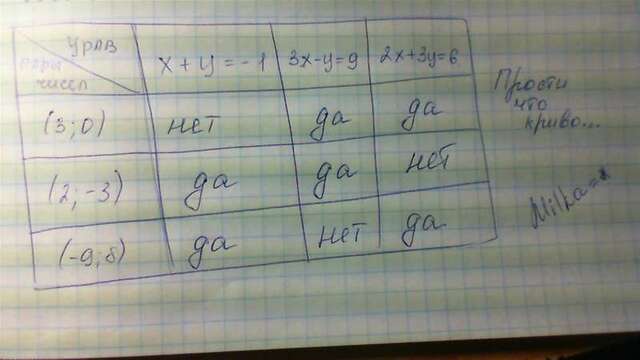 урав
пары
чисел
x + y = -1 3x-y=9 2x+3y=6
(3;0) нет да да
(2;-3) да да нет
(-9;8) да нет да
Прости
что
криво...
Milka=*